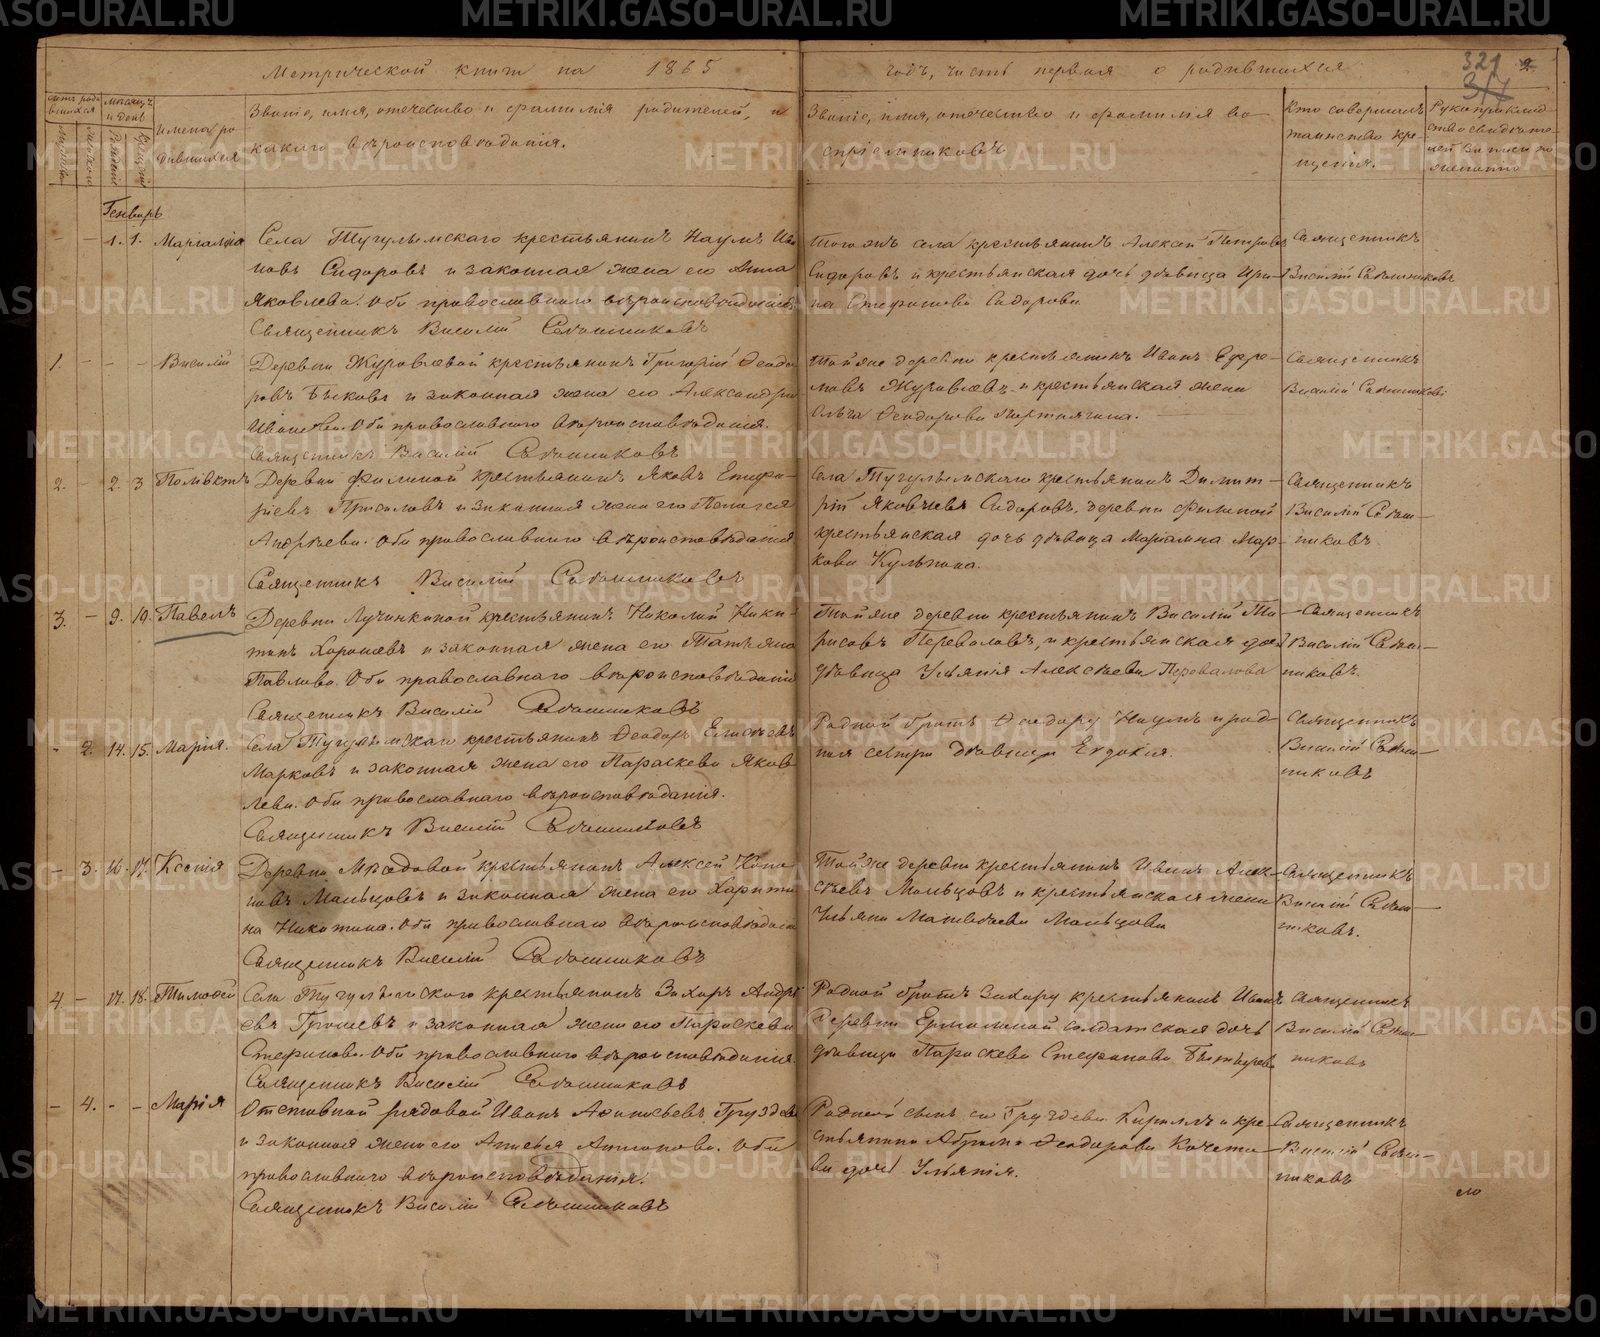 Метрической книги на 1865
годъ, часть первая о родившихся
321
Счетъ роди
вшихся
Мѣсяцъ
и день
Имена ро
дившихся
Званіе, имя, отечество и фамилія родителей, и
какаго вѣроисповѣданія.
Званіе, имя, отечество и фамилія во-
спріемниковъ
Кто совершалъ
таинство кре
щенія.
Рукоприклад
ство свидѣте-
лей записи по
желанію
Генварь
- - 1. 1. Маріамна
Села Тугулымскаго крестьянинъ Наумъ Ива
новъ Сидоровъ и законная жена его Анна
Яковлева. Оба православнаго вѣроисповѣданія
Священникъ Василій
Тогожъ села крестьянинъ Алексѣй Петровъ
Сидоровъ и крестьянская дочь дѣвица Ири-
на Стефанова Сидорова
Священникъ
Василій
1. - - - Василій
Деревни Журавлевой крестьянинъ Григорій Ѳеодо
ровъ Быковъ и законная жена его Александра
Иванова. Оба православнаго вѣроисповѣданія.
Священникъ Василій
Тойже деревни крестьянинъ Иванъ Ефре-
мовъ Журавлевъ и крестьянская жена
Ольга Ѳеодорова
Священникъ
Василій
2. - 2. 3 Поліевктъ
Деревни Филиной крестьянинъ Яковъ
и законная жена его Пелагея
Андреева. Оба православнаго вѣроисповѣданія
Священникъ Василій
Села Тугулымскаго крестьянинъ Димит-
рій Яковлевъ Сидоровъ, деревни Филиной
крестьянская дочь дѣвица Маріамна Мар-
кова Кульпина.
Священникъ
Василій
3. - 9. 10. Павелъ
Деревни Лучинкиной крестьянинъ Николай Ники-
тинъ Хорошевъ и законная жена его Татьяна
Павлова. Оба православнаго вѣроисповѣданія
Священникъ Василій
Тойже деревни крестьянинъ Василій Та
расовъ Переваловъ, и крестьянская дочь
дѣвица Ульянія Алексѣева Перевалова
Священникъ
Василій
- 2. 14. 15. Марія.
Села Тугулымскаго крестьянинъ Ѳеодоръ Елисѣевъ
Марковъ и законная жена его Параскева Яков
лева. Оба православнаго вѣроисповѣданія.
Священникъ Василій
Родной братъ Ѳеодору Наумъ и род-
ная сестра дѣвица Евдокія.
Священникъ
Василій
- 3. 16. 17. Ксенія
Деревни Мѣдовой крестьянинъ Алексѣй
Мальцовъ и законная жена его Харити
на Никитина. Оба православнаго вѣроисповѣданія
Священникъ Василій
Тойже деревни крестьянинъ Иванъ Алек-
сѣевъ Мальцовъ и крестьянская жена
Ульяна Матвѣева Мальцова
Священникъ
Василій
4. - 17. 18. Тимоѳей
Села Тугулымскаго крестьянинъ Захаръ Андре
евъ Грошевъ и законная жена его Параскева
Стефанова. Оба православнаго вѣроисповѣданія.
Священникъ Василій
Родной братъ Захару крестьянинъ Иванъ
деревни Ермолиной солдатская дочь
дѣвица Параскева Стефанова
Священникъ
Василій
- 4. - - Марія
Отставной рядовой Иванъ Аѳанасьевъ Груздевъ
и законная жена его Антонова. Оба
православнаго вѣроисповѣданія.
Священникъ Василій
Родной сынъ Груздева Кириллъ и кре-
стьянина Абрама Ѳеодорова Кочета-
ва дочь Ульянія.
Священникъ
Василій
METRIKI.GASO-URAL.RU